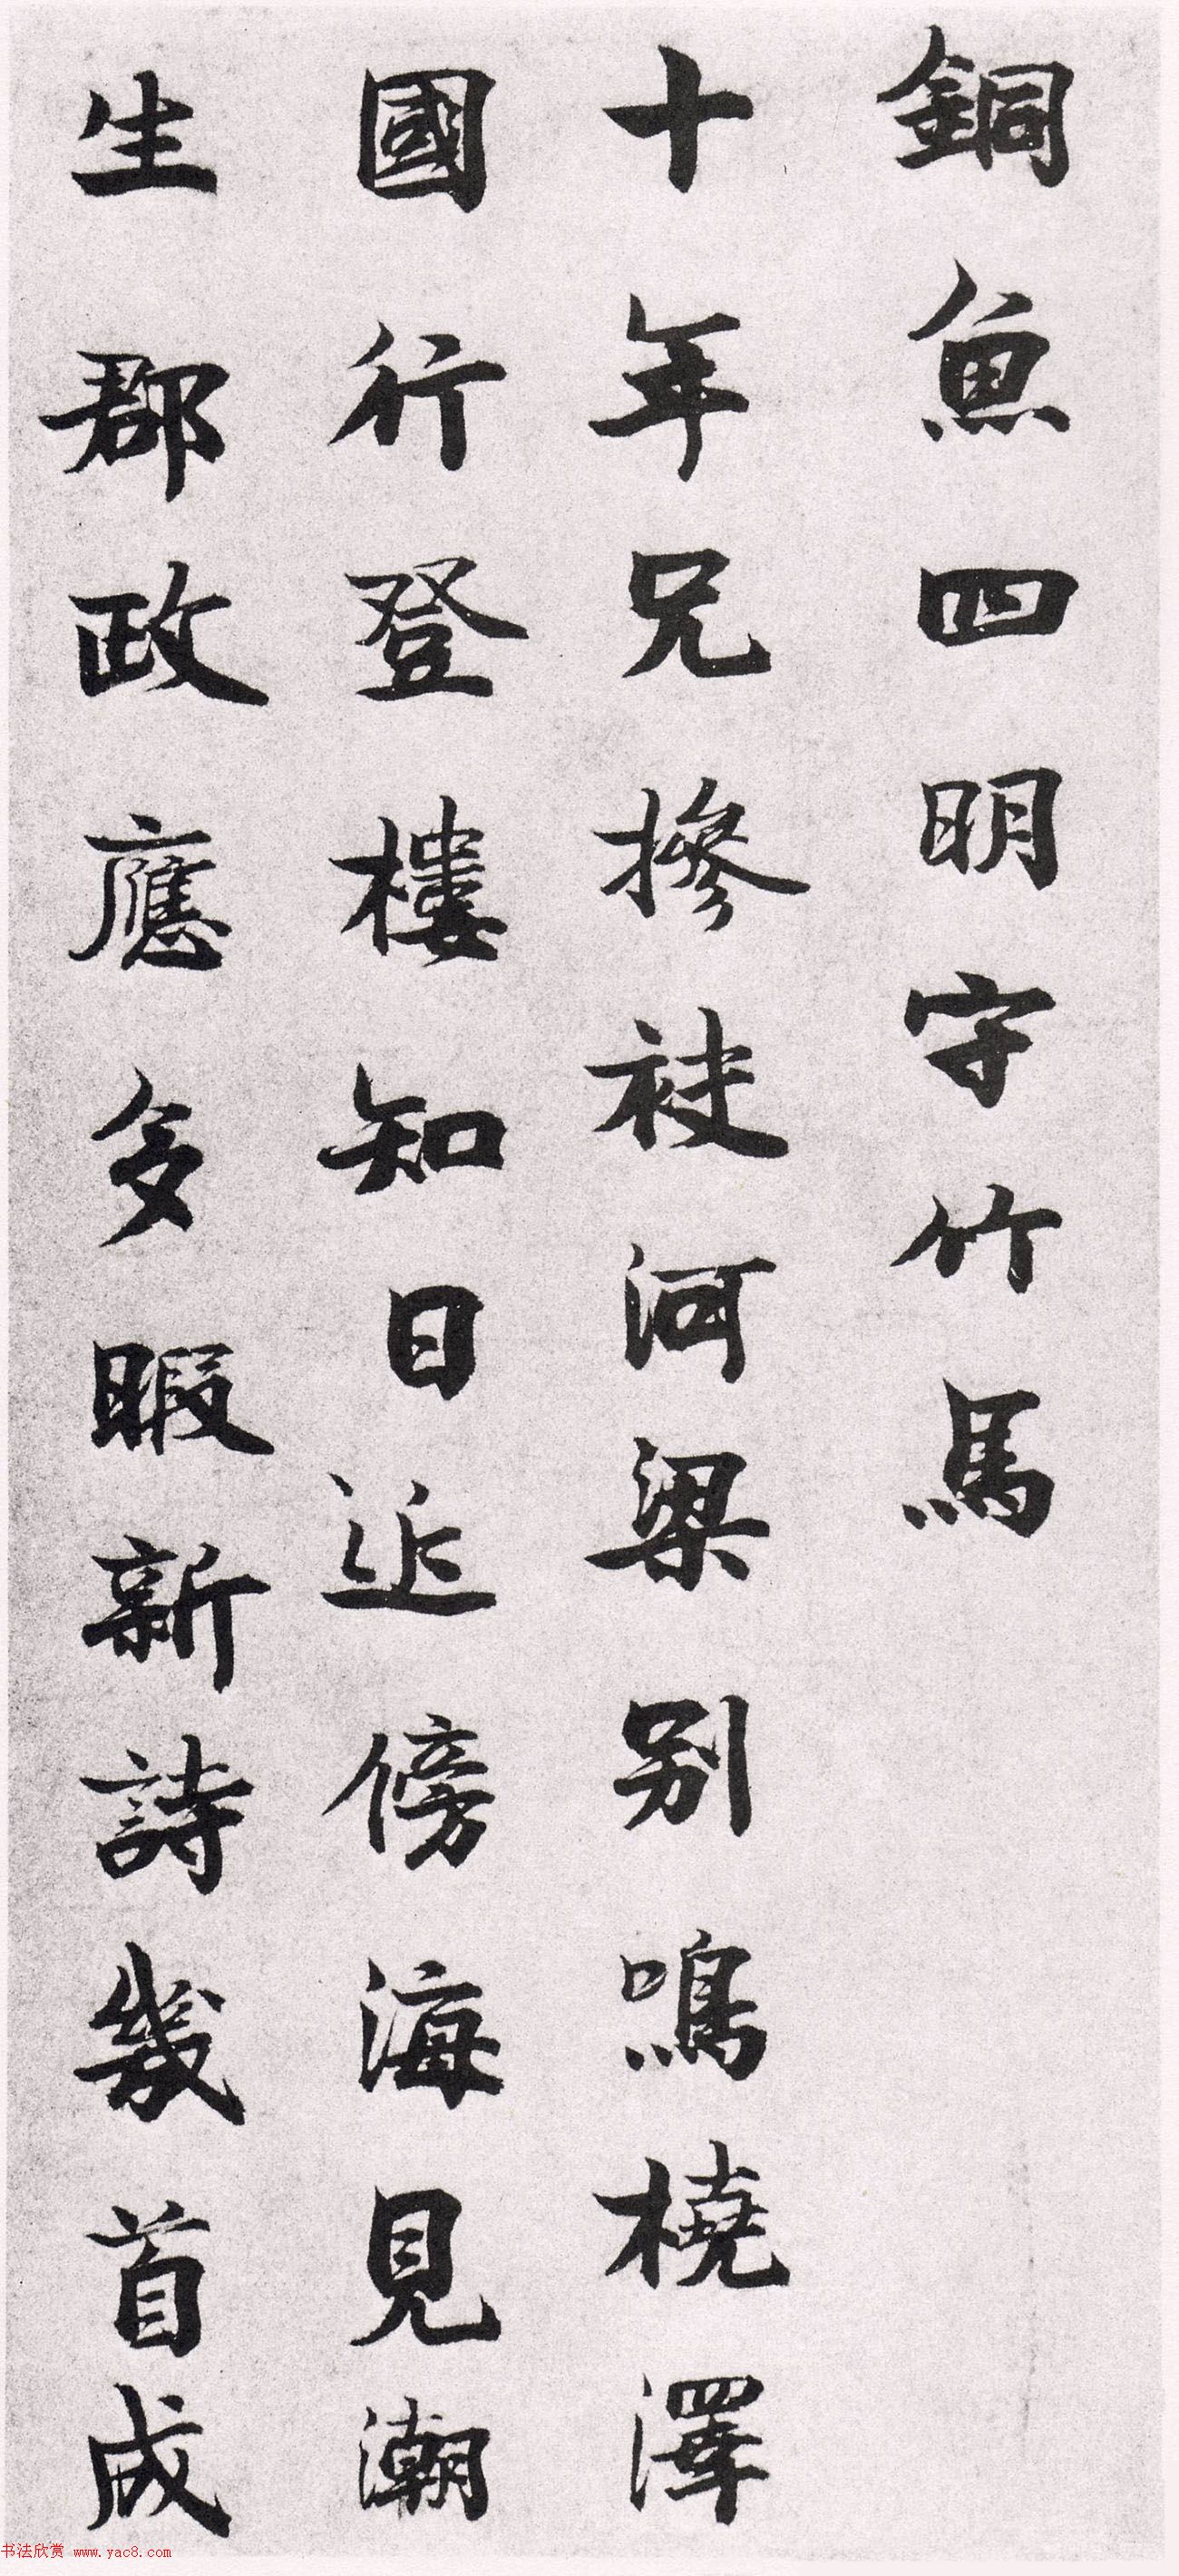 銅魚四明守竹馬
十年兄摻袂河梁別鳴橈澤
國行登樓知日近傍海見潮
生郡政應多暇新詩幾首成
书法欣赏 www.yac8.com